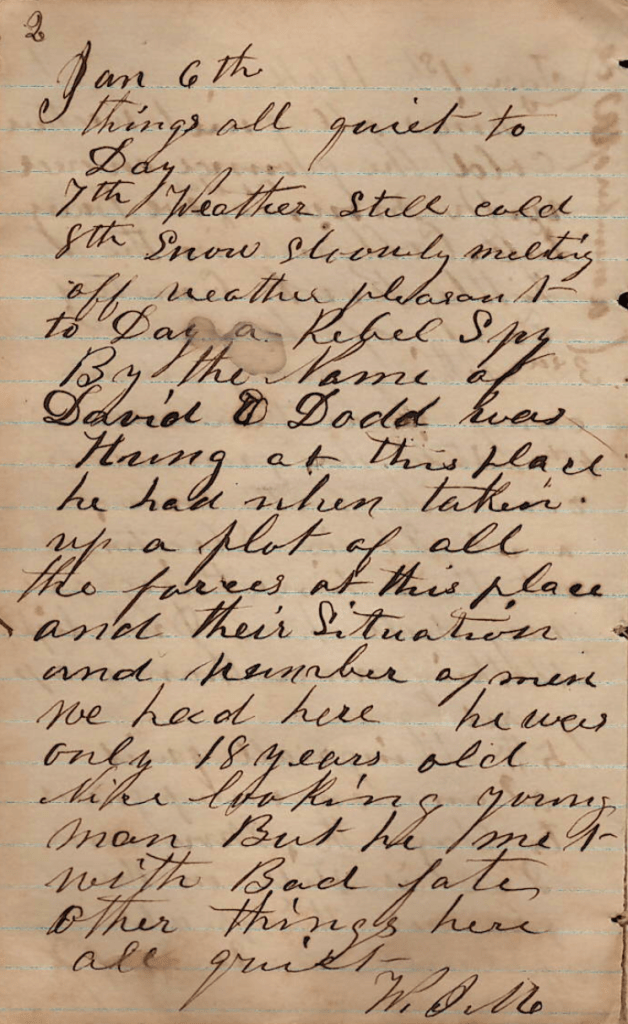 2
Jan 6th
things all quiet to
Day
7th Weather Still cold
8th Snow Slowly melting
off weather pleasant
to Day a Rebel Spy
By the Name of
David O Dodd was
Hung at this place
he had when taken
up a plot of all
the forces at this place
and their Situation
and number of men
we had here he was
only 18 years old
Nice looking young
man But he met
with Bad fate
Other things here
all quiet